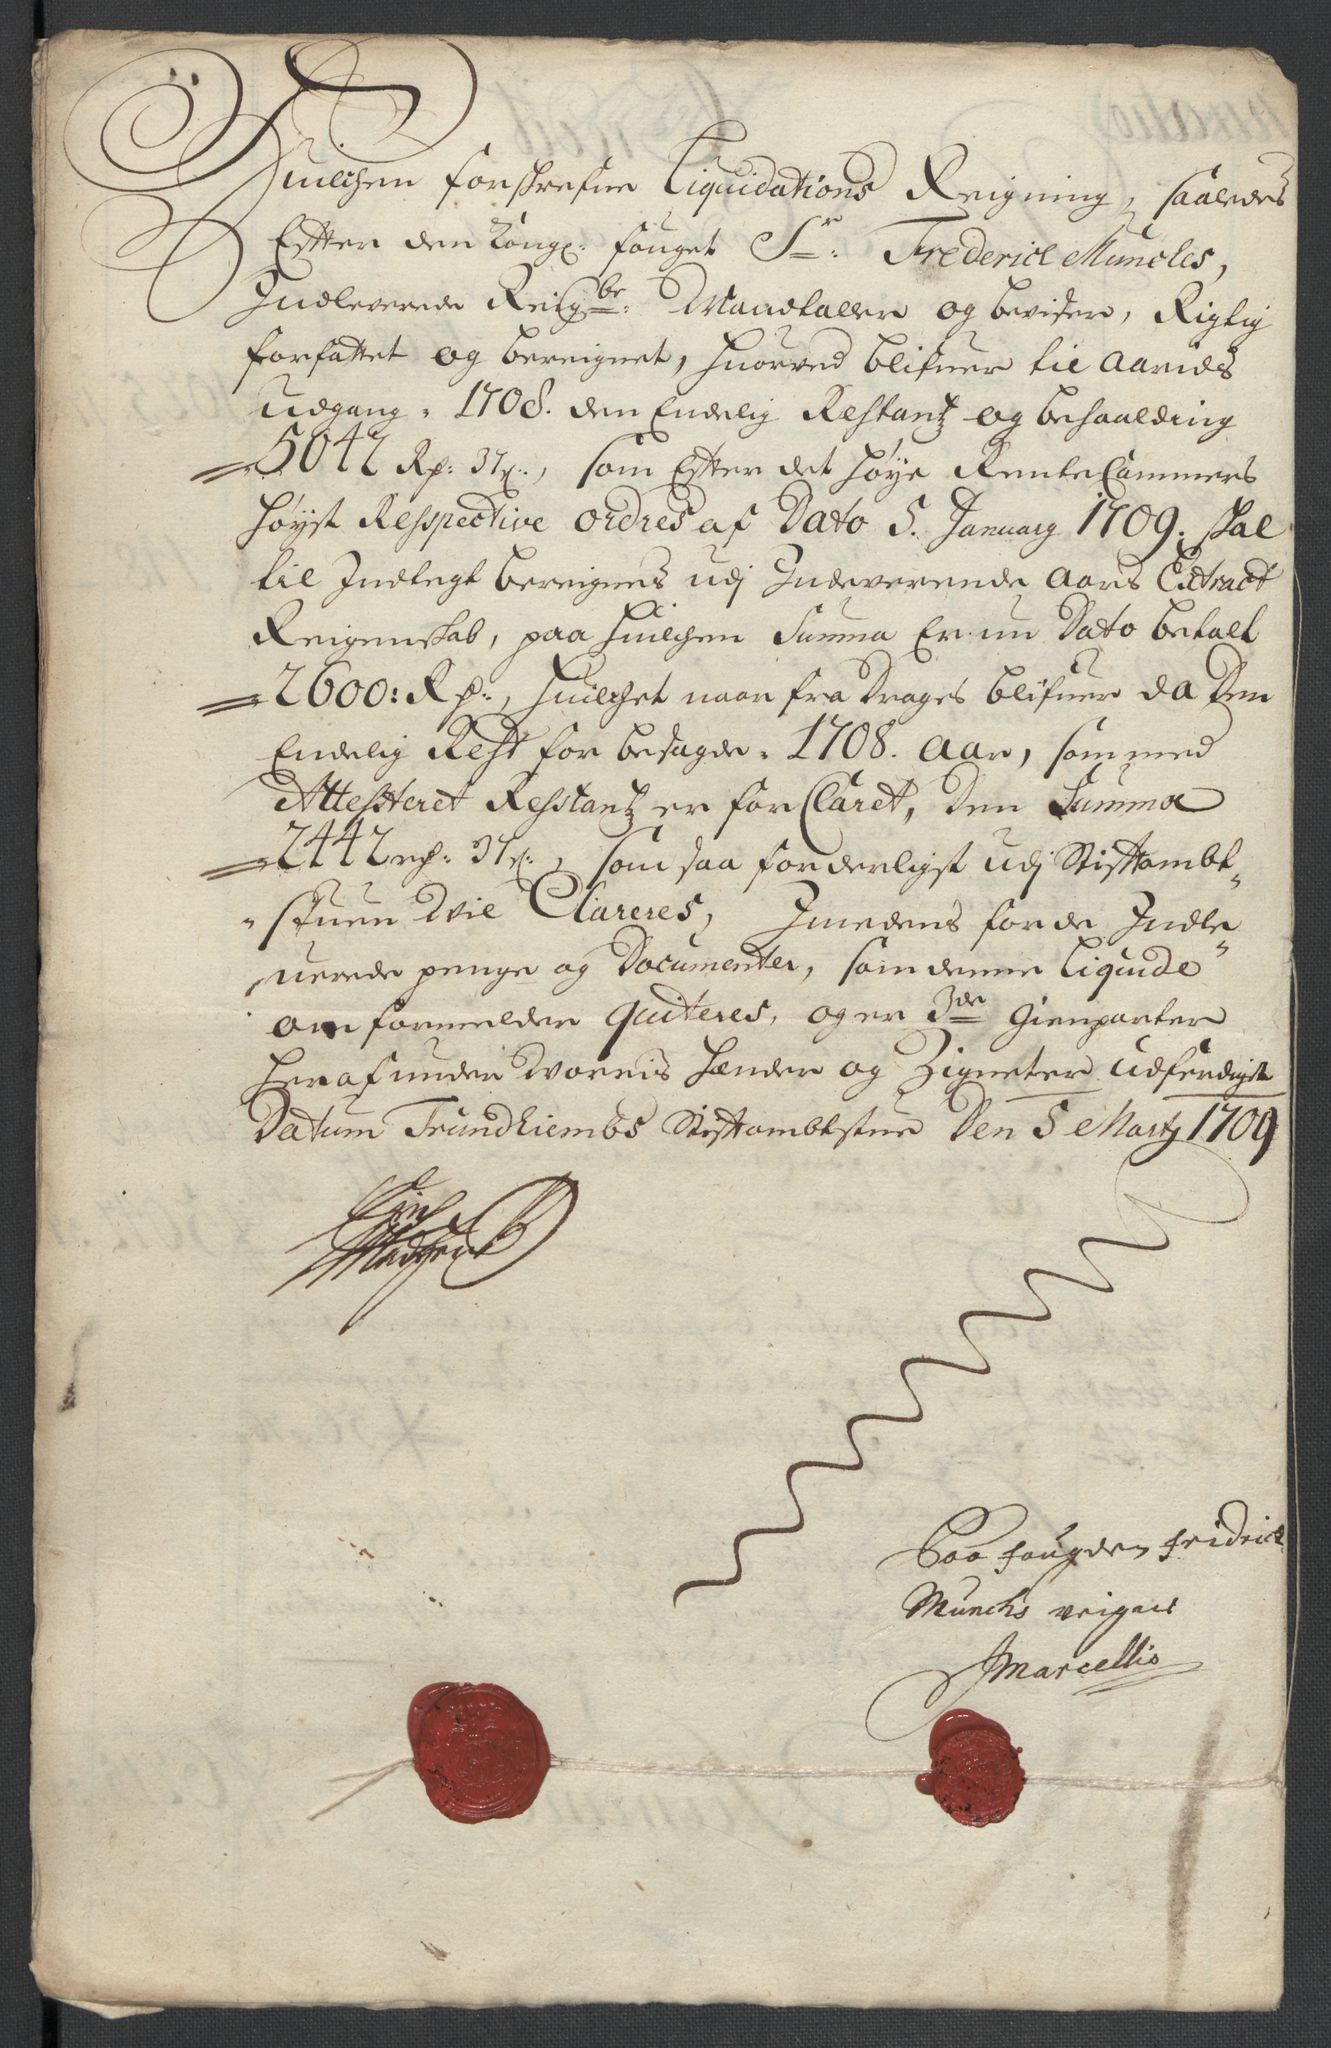 Huilchen forschrefne Liquidations Reigning, saaledes
Effter den Kongl: fouget Sr: Frederich Munches,
Indleverede Reigbr: Mandtaller og beviser, Rigtig
forfattet og bereignet, huorved blifuer til aarids
Udgang, 1708. den Endelig Restantz og behaalding
5042 Rp: 3 1/2 s:, som Effter det høye RenteCammers
høyst Respective ordres af Dato 5. January 1709. skal
til Indtegt bereignes udj Indeverende aars Extract
Reigenskab, paa huilchen Summa Er nu Dato betalt
2600: Rp:, huilchet naar fra Drages blifuer da Den
Endelig Rest for besagde, 1708. aar, som med
Attesteret Restantz er for Claret, Den Summa
2442 rp: 3 1/2 s:, som saa forderligst udj Stiftambt-
stuen Wil Clareres, Imedens for de Indle
uerede penge og Documenter, som denne Liquide
om formelder quiteres, og er 3de Gienparter
heraf under Worris hænder og Zigneter udferdiget
Datum Trundhiembs Stiftambtstue Den 5 Marty 1709
Paa fougden Fridrich
Munchs veigne
JMarcellis